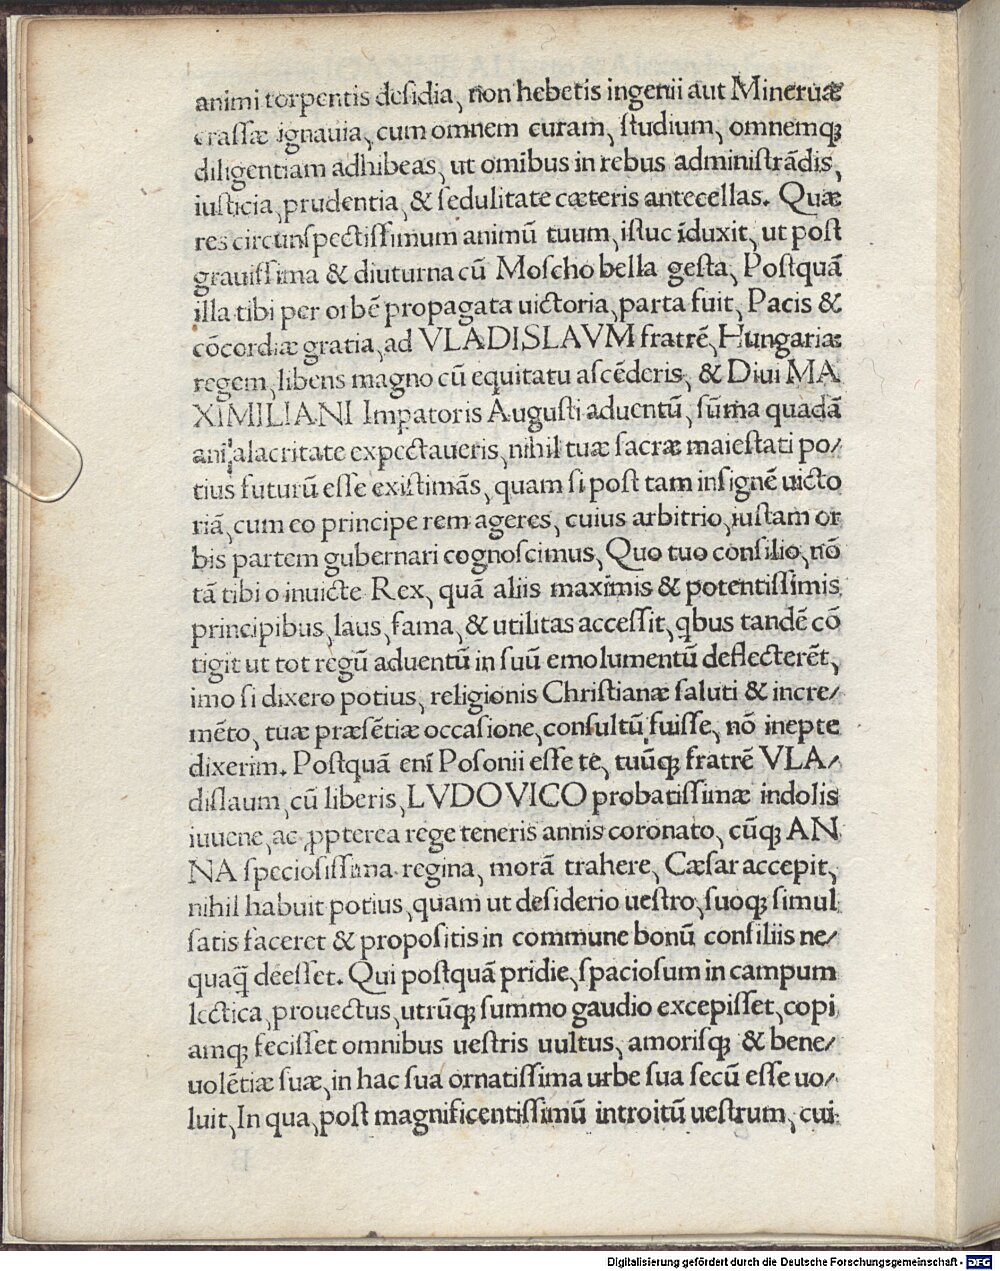 animi torpentis desidia, non hebetis ingenii aut Mineruæ
crassæ ignauia, cum omnem curam, studium, omnemq;
diligentiam adhibeas, ut omibus in rebus administrādis,
iusticia, prudentia, & sedulitate cæteris antecellas. Quæ
res circunspectissimum animū tuum, istuc īduxit, ut post
grauissima & diuturna cū Moscho bella gesta, Postquā
illa tibi per orbē propagata uictoria, parta fuit, Pacis &
cōcordiæ gratia, ad VLADISLAVM fratrē, Hungariæ
regem, libens magno cū equitatu ascēderis, & Diui MA
XIMILIANI Impatoris Augusti aduentū, sūma quadā
aniī alacritate expectaueris, nihil tuæ sacræ maiestati po/
tius futurū esse existimās, quam si post tam insignē uicto
riā, cum eo principe rem ageres, cuius arbitrio, iustam or
bis partem gubernari cognoscimus, Quo tuo consilio, nō
tā tibi o inuicte Rex, quā aliis maximis & potentissimis
principibus, laus, fama, & utilitas accessit, qbus tandē cō
tigit ut tot regū aduentū in suū emolumentū deflecterēt,
imo si dixero potius, religionis Christianæ saluti & incre/
mēto, tuæ præsētiæ occasione, consultū fuisse, nō inepte
dixerim. Postquā enī Posonii esse te, tuūq; fratrē VLA/
dislaum, cū liberis, LVDOVICO probatissimæ indolis
iuuene, ac ꝓpterea rege teneris annis coronato, cūq; AN
NA speciosissima regina, morā trahere, Cæsar accepit,
nihil habuit potius, quam ut desiderio uestro, suoq; simul
satis faceret & propositis in commune bonū consiliis ne/
quaq̄ deesset. Qui postquā pridie, spaciosum in campum
lectica, prouectus, utrūq; summo gaudio excepisset, copi
amq; fecisset omnibus uestris uultus, amorisq; & bene/
uolētiæ suæ, in hac sua ornatissima urbe sua secū esse uo/
luit, In qua, post magnificentissimū introitū uestrum, cui
Digitalisierung gefördert durch die Deutsche Forschungsgemeinschaft - DFG